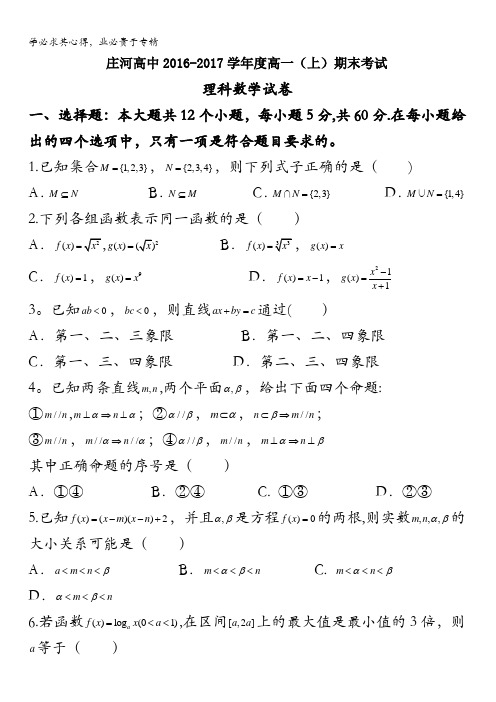 学必求其心得，业必贵于专精
庄河高中2016-2017学年度高一（上）期末考试
理科数学试卷
一、选择题：本大题共12个小题，每小题5分,共60分.在每小题给
出的四个选项中，只有一项是符合题目要求的。
1.已知集合M={1,2,3}，N={2,3,4}，则下列式子正确的是（ ）
A．M⊆N B．N⊆M C．M∩N={2,3} D．M∪N={1,4}
2.下列各组函数表示同一函数的是（ ）
A．f(x)=√x²,g(x)=(√x)² B．f(x)=∛x³，g(x)=x
C．f(x)=1，g(x)=x⁹ D．f(x)=x-1，g(x)=(x²-1)/(x+1)
3。已知ab<0，bc<0，则直线ax+by=c通过( ）
A．第一、二、三象限 B．第一、二、四象限
C．第一、三、四象限 D．第二、三、四象限
4。已知两条直线m,n,两个平面α,β，给出下面四个命题:
①m//n,m⊥α⇒n⊥α；②α//β，m⊂α，n⊂β⇒m//n；
③m//n，m//α⇒n//α；④α//β，m//n，m⊥α⇒n⊥β
其中正确命题的序号是（ ）
A．①④ B．②④ C. ①③ D．②③
5.已知f(x)=(x-m)(x-n)+2，并且α,β是方程f(x)=0的两根,则实数m,n,α,β的
大小关系可能是（ ）
A．a<m<n<β B．m<α<β<n C. m<α<n<β
D．α<m<β<n
6.若函数f(x)=logₐx(0<a<1),在区间[a,2a]上的最大值是最小值的3倍，则
a等于（ ）